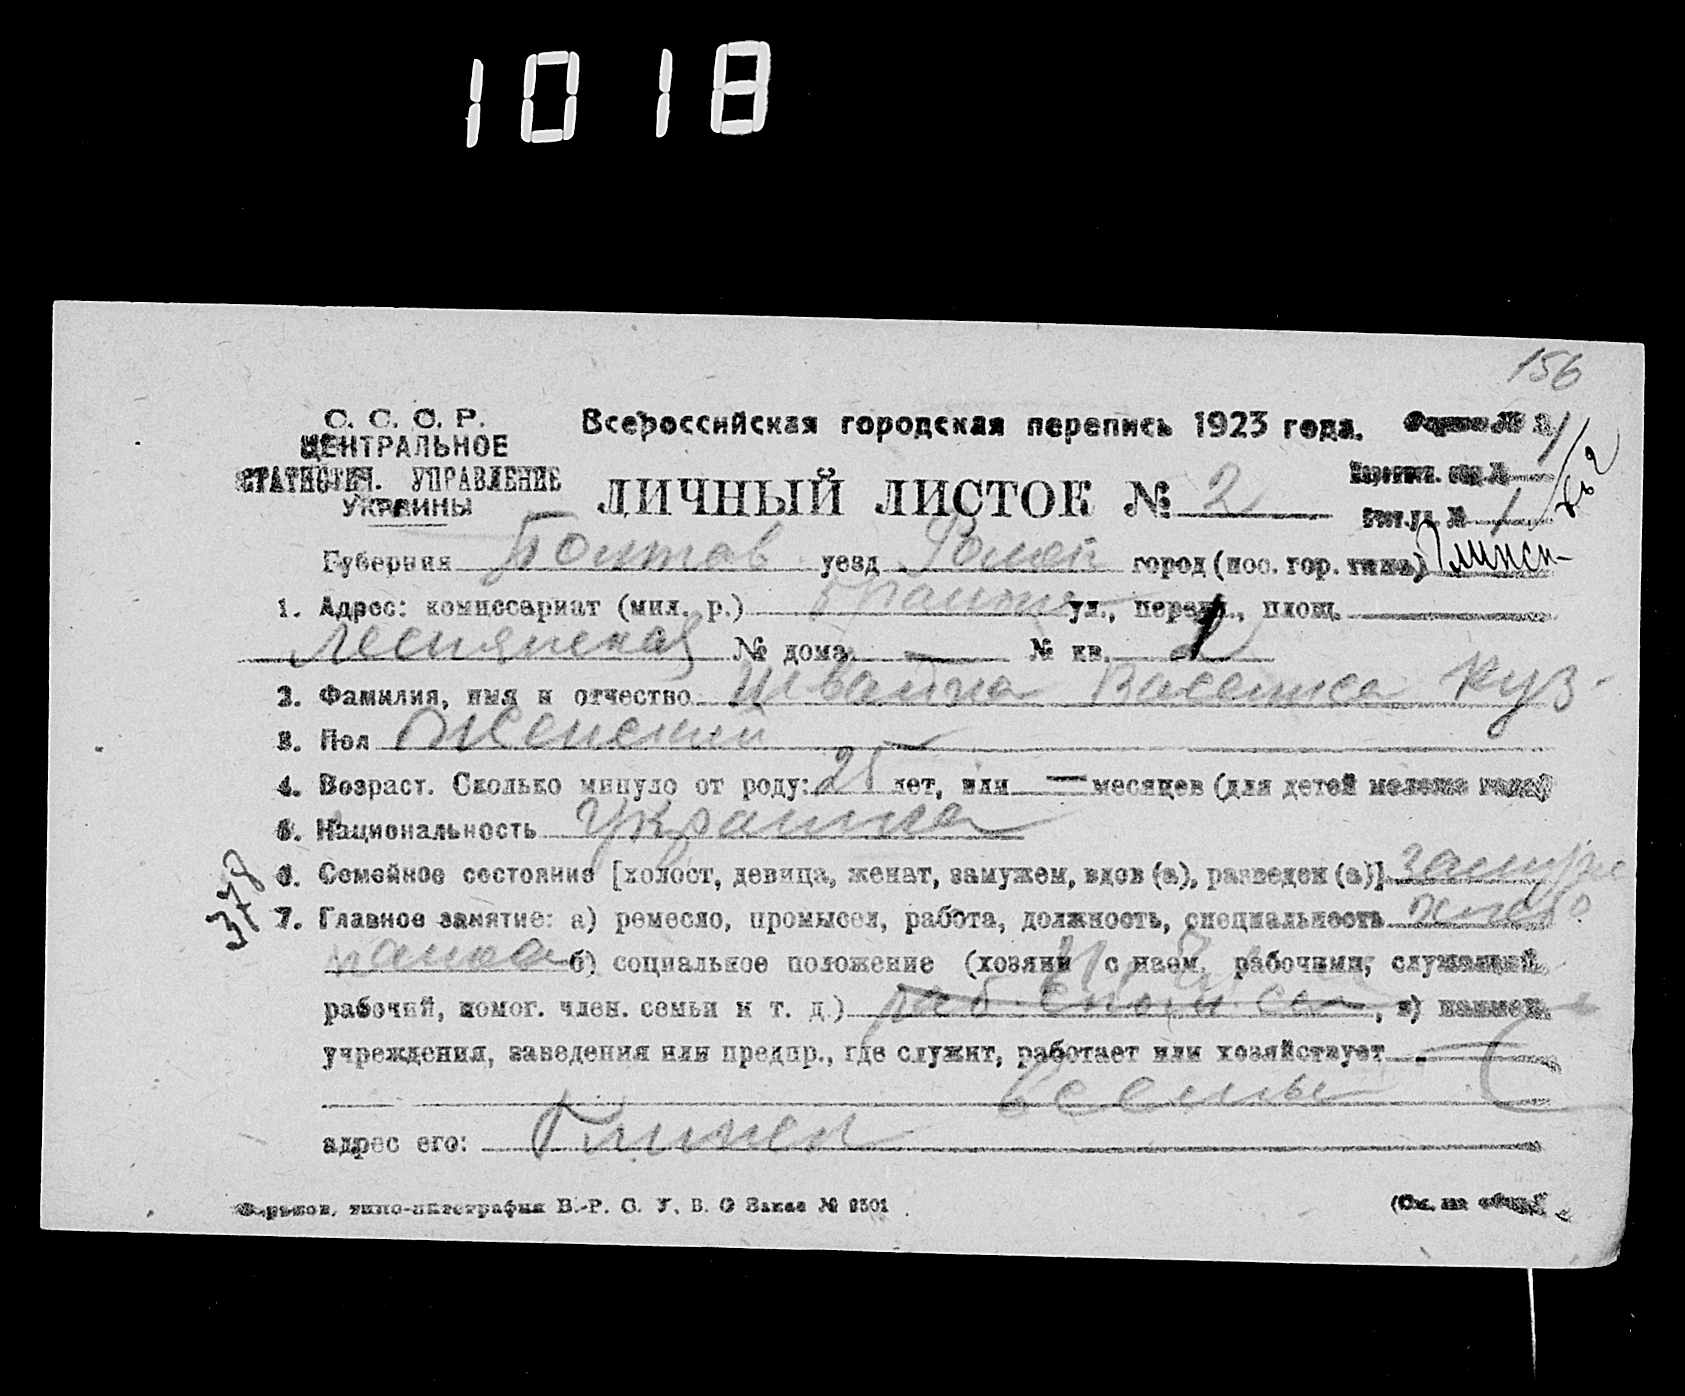 1018
156
С. С. С. Р.
ЦЕНТРАЛЬНОЕ
СТАТИСТИЧ. УПРАВЛЕНИЕ
УКРАИНЫ
Всероссийская городская перепись 1923 года.
Форма № 1
ЛИЧНЫЙ ЛИСТОК № 2
Переписн. отд. №
Счет. уч. № 1
Губерния Полтав уезд Ромен город (пос. гор. типа) Глинск
1. Адрес: комиссариат (мил. р.) ул., переул., площ.
№ дома — № кв.
2. Фамилия, имя и отчество Швайка Василиса Куз-
3. Пол Женский
4. Возраст. Сколько минуло от роду: 25 лет, или — месяцев (для детей моложе года)
5. Национальность Украинка
6. Семейное состояние [холост, девица, женат, замужем, вдов (а), разведен (а)] замуже
3778
7. Главное занятие: а) ремесло, промысел, работа, должность, специальность хлебо
пашка б) социальное положение (хозяин с наем. рабочими, служащий,
рабочий, помог. член. семьи и т. д.) , в) наимен.
учреждения, заведения или предпр., где служит, работает или хозяйствует
адрес его: Глинск
Харьков, типо-литография В.-Р. С. У. В. О Заказ № 9501
(См. на обор.)